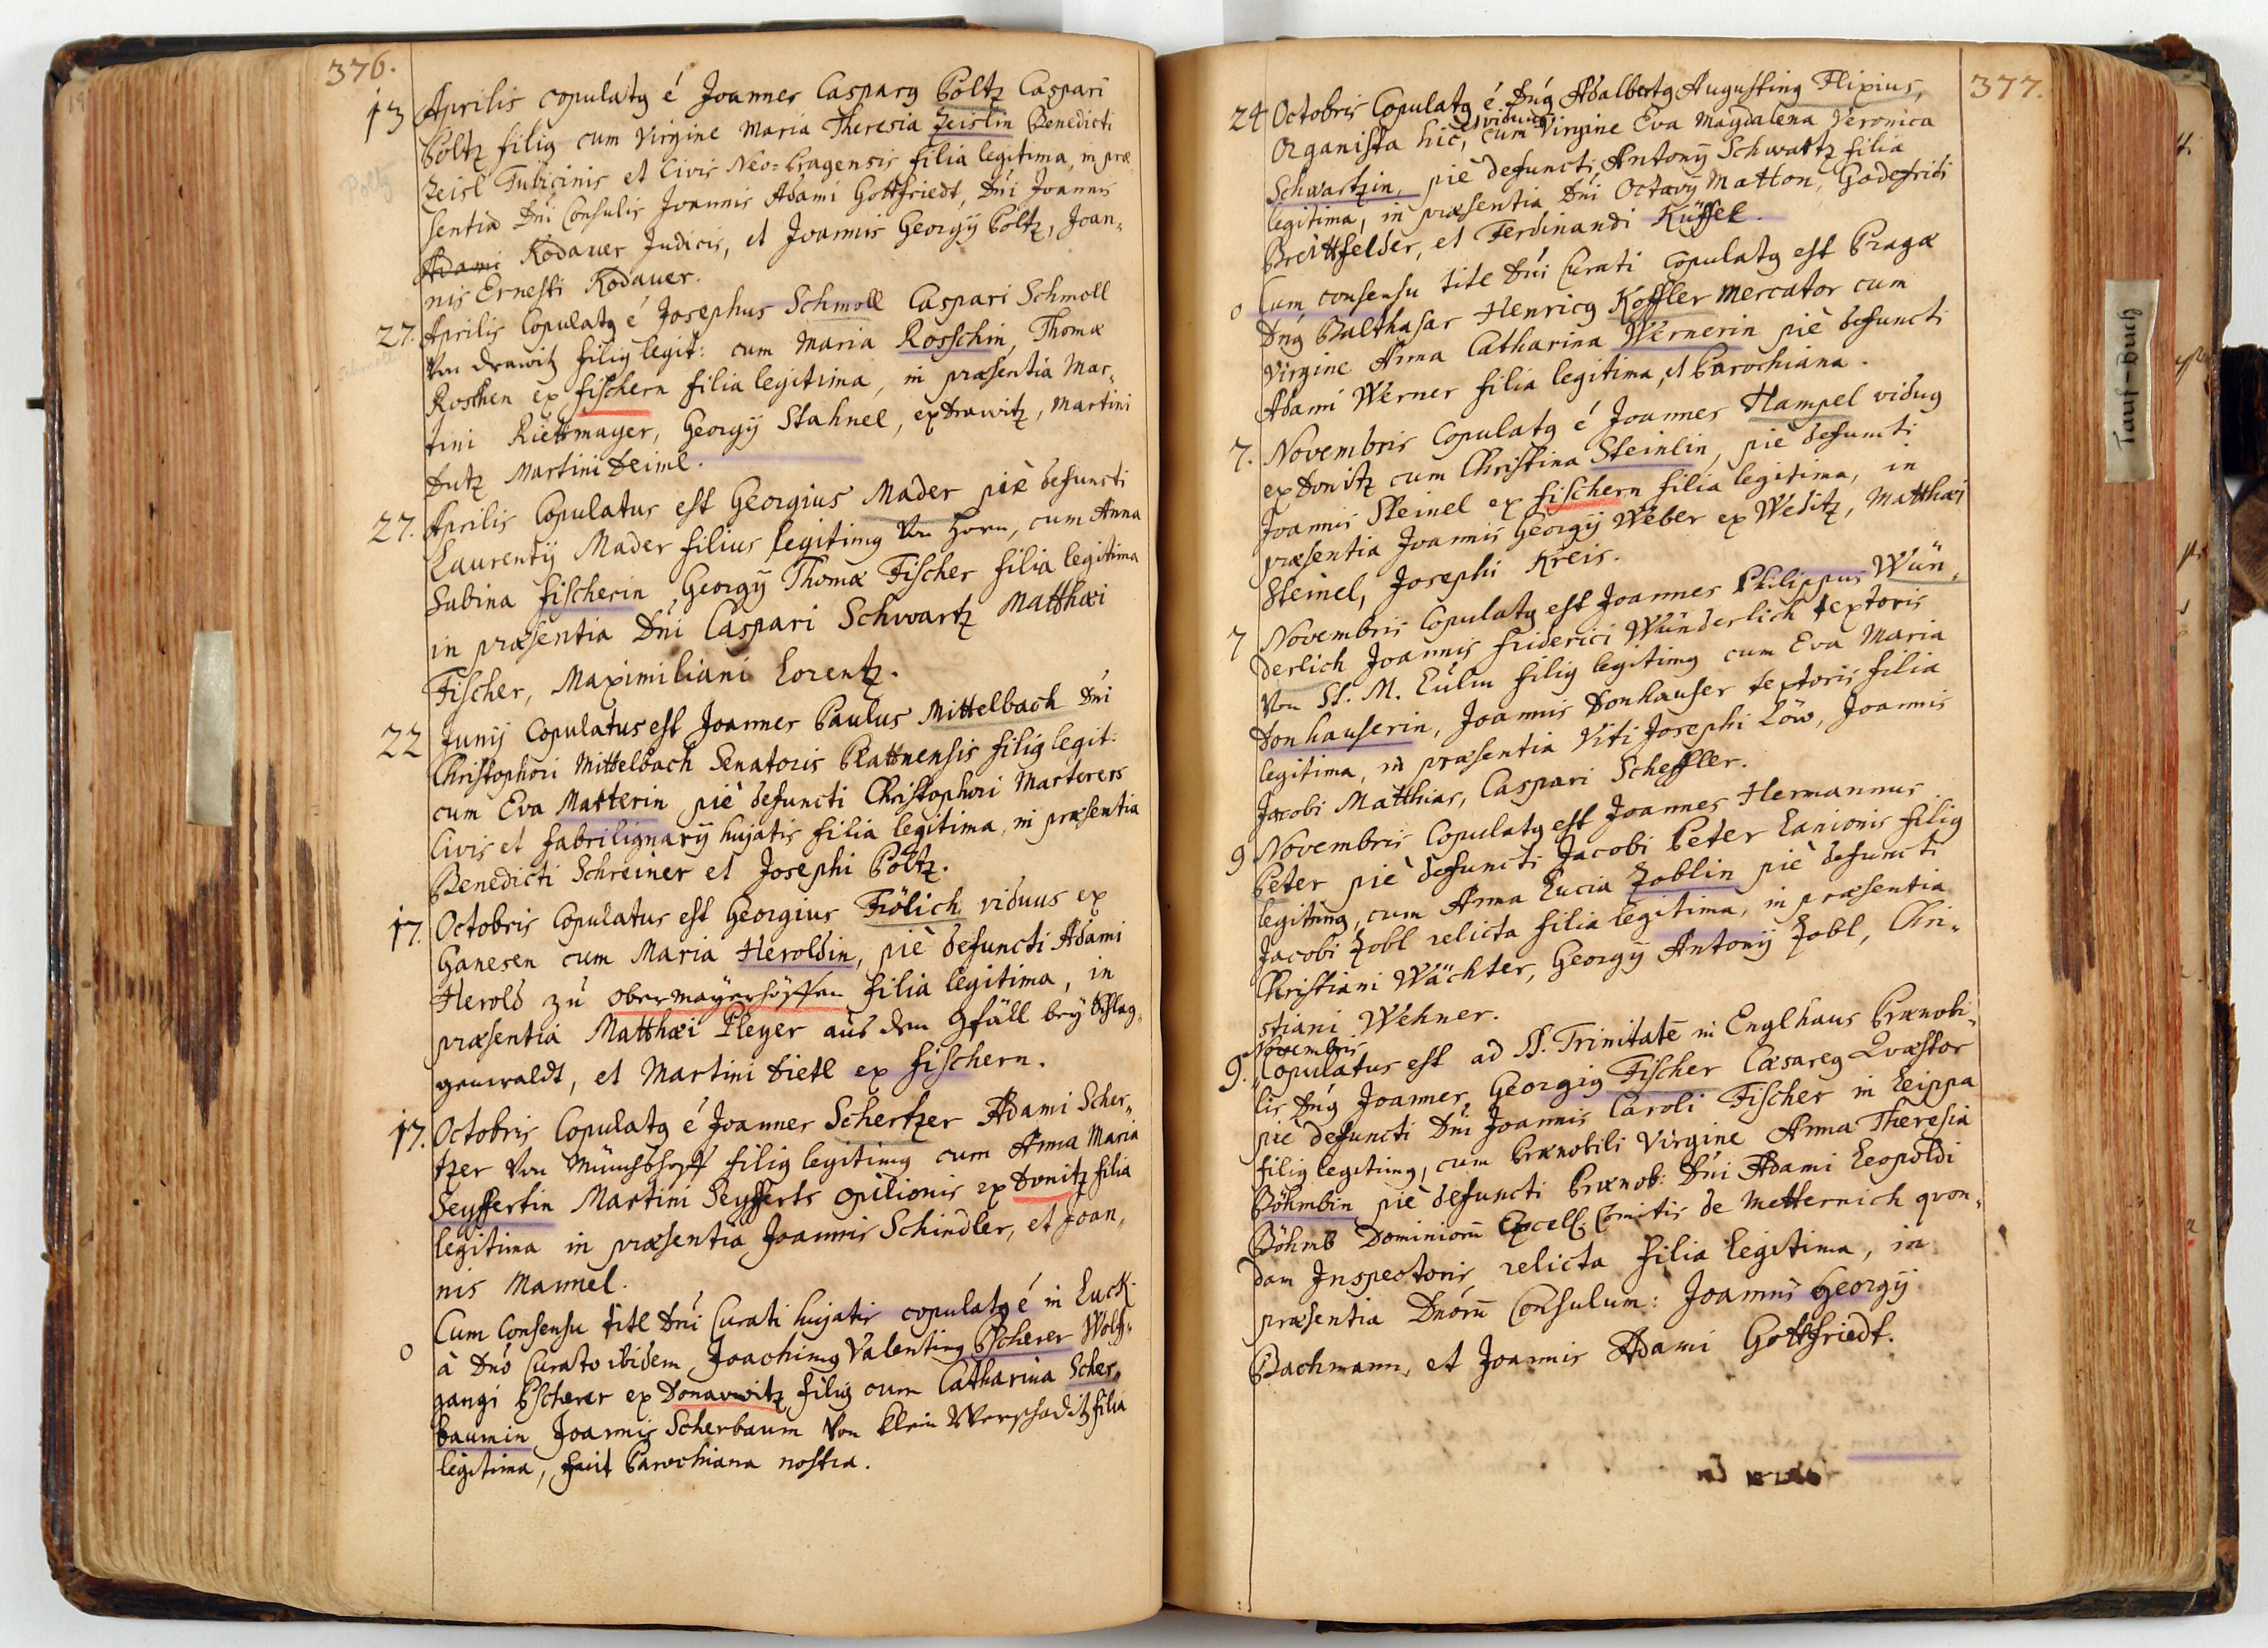 376.
13 Aprilis copulatg é Joannes Casparg Poltz Caspari
Poltz filig cum Virgine Maria Theresia Zeislin Benedicti
Zeisl Tubicinis et Civis Neo=Pragensis filia legitima, in præ
sentia Dni Consulis Joannis Adami Gottfriedt, Dni Joannis
Adami Kodauer Judicis, et Joannis Georgÿ Poltz, Joan„
nis Ernesti Kodauer.
Poltz
27. Aprilis Copulatg é Josephus Schmoll Caspari Schmoll
Von Drawitz filig legit: cum Maria Rosschin, Thomæ
Schmoll
Roschen ex fischern filia legitima, in præsentia Mar„
tini Riettmayer, Georgÿ Stahnel, ex Drawitz, Martini
Dutz Martini Deiml.
27. Aprilis Copulatus est Georgius Mader piè defuncti
Laurentÿ Mader filius legitimg Von Horn, cum Anna
Sabina fischerin Georgÿ Thomæ Fischer filia legitima
in præsentia Dni Caspari Schwartz Matthæi
Fischer, Maximiliani Lorentz.
22 Junÿ Copulatus est Joannes Paulus Mittelbach Dni
Christophori Mittelbach Senatoris Plattnensis filig legit:
cum Eva Matterin piè defuncti Christophori Marterers
Civis et fabrilignarÿ hujatis filia legitima, in præsentia
Benedicti Schreiner et Josephi Poltz.
17. Octobris Copulatus est Georgius Frölich viduus ex
Ganesen cum Maria Heroldin, piè defuncti Adami
Herold zu obermaÿerhöffen filia legitima, in
præsentia Matthæi Pleyer aus dem Gfäll beÿ Schlag„
genwaldt, et Martini Dietl ex fischern.
17. Octobris Copulatg é Joannes Schertzer Adami Scher„
tzer Von Münchshoff filig legitimg cum Anna Maria
Seyffertin Martini Seyfferts opilionis ex Donitz filia
legitima in præsentia Joannis Schindler, et Joan„
nis Mannel.
o Cum Consensu titl Dni Curati hujatis copulatg é in Luck
à Dno Curato ibidem Joachimg Valenting Pscherer Wolf„
gangi Pscherer ex Donawitz filig cum Catharina Scher„
baumin Joannis Scherbaum Von klein Werschaditz filia
legitima, fuit Parochiana nostra.
377.
24 Octobris Copulatg é Dng Adalbertg Augusting Flixius,
et viduus
Organista hic, cum Virgine Eva Magdalena Veronica
Schwartzin, piè defuncti Antonÿ Schwartz filia
legitima, in præsentia Dni Octavÿ Matton, Godefridi
Breittfelder, et Ferdinandi Küffel.
o Cum consensu titl Dni Curati copulatg est Pragæ
Dng Balthasar Henricg Koffler Mercator cum
Virgine Anna Catharina Wernerin piè defuncti
Adami Werner filia legitima, et Parochiana.
7. Novembris Copulatg é Joannes Hampel vidug
ex Donitz cum Christina Steinlin, piè defuncti
Joannis Steinel ex fischern filia legitima, in
præsentia Joannis Georgÿ Weber ex Weditz, Matthæi
Steinel, Josephi Kreis.
7 Novembris Copulatg est Joannes Philippus Wun„
derlich Joannis friderici Wunderlich textoris
Von St. M. Culm filig legitimg cum Eva Maria
Donhauserin, Joannis Donhauser textoris filia
legitima, in præsentia Viti Josephi Löw, Joannis
Jacobi Matthias, Caspari Scheffler.
9 Novembris Copulatg est Joannes Hermannus
Peter piè defuncti Jacobi Peter Lanionis filig
legitimg, cum Anna Lucia Zoblin piè defuncti
Jacobi Zobl relicta filia legitima, in præsentia
Christiani Wächter, Georgÿ Antonÿ Zobl, Chri„
stiani Wehner.
Novembris
9. Copulatus est ad SS. Trinitatē in Englhaus Prænobi„
lis Dng Joannes Georgig Fischer Cæsareg Quæstor
piè defuncti Dni Joannis Caroli Fischer in Leippa
filig legitimg, cum Prænobili Virgine Anna Theresia
Böhmbin piè defuncti Prænob: Dni Adami Leopoldi
Böhmb Dominiorū Excell: Comitis de Metternich quon„
dam Inspectoris relicta filia legitima, in
præsentia Dnorū Consulum: Joannis Georgÿ
Bachmann, et Joannis Adami Gottfriedt.
Tauf-Buch